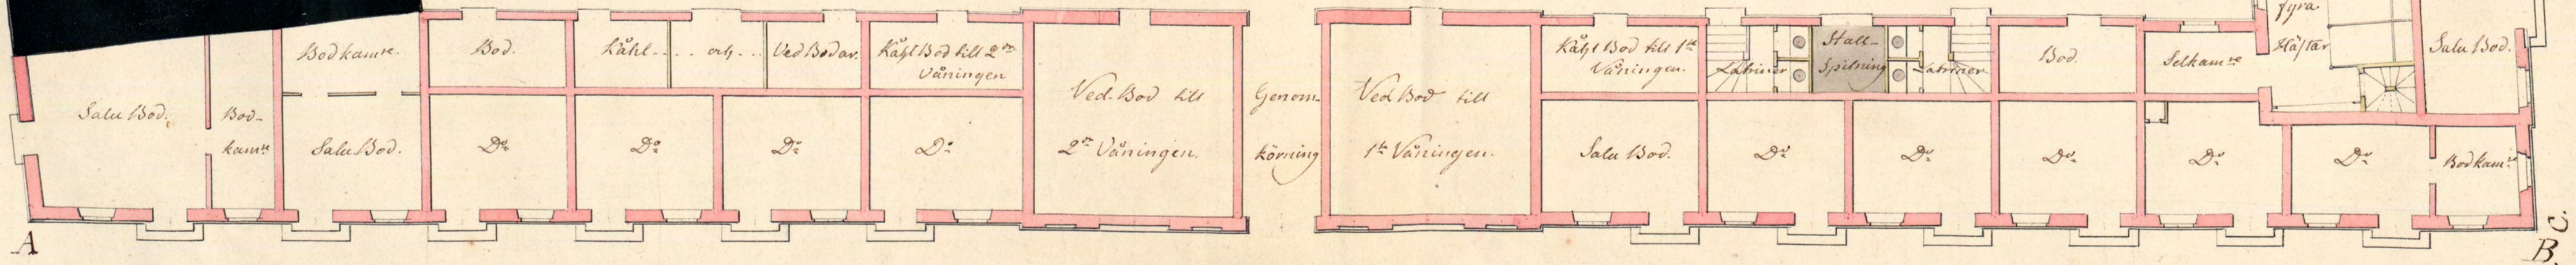 Bodkamre.
Bod.
Kåhl - . . och . . .
Ved Bodar.
Kåhl Bod till 2dra
Våningen
Salu Bod.
Bod-
kamre
Salu Bod.
Do
Do
Do
Do
Ved. Bod till
2dra Våningen.
Genom-
körning
Ved Bod till
1sta Våningen.
Kåhl Bod till 1sta
Våningen.
Latriner
Stall-
Spilning
Latriner
Bod.
Selkamre
fyra
Hästar
Salu Bod.
Salu Bod.
Do
Do
Do
Do
Do
Bodkamre
A
B.
C.